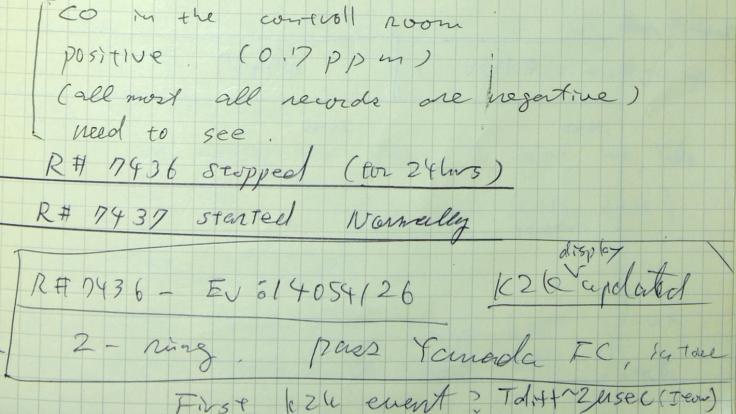 CO in the controll room
positive. (0.7 ppm)
(all most all records are negative)
need to see.
R# 7436 stopped (for 24hrs)
R# 7437 started Normally
display
R# 7436 - Ev: 14054126 K2K updated
2-ring. pass Yamada FC,
First K2K event? Tdiff~2μsec